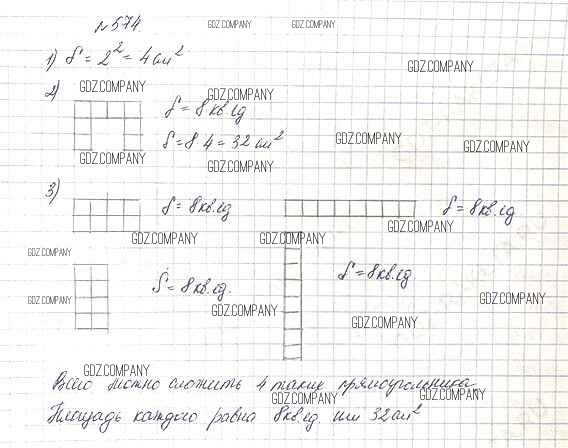 №574.
GDZ.COMPANY
GDZ.COMPANY
1) S = 2² = 4 см²
GDZ.COMPANY
GDZ.COMPANY
GDZ.COMPANY
2)
S = 8 кв.ед
S = 8·4 = 32 см²
GDZ.COMPANY
GDZ.COMPANY
GDZ.COMPANY
GDZ.COMPANY
3)
S = 8кв.ед
S = 8кв.ед
GDZ.COMPANY
GDZ.COMPANY
GDZ.COMPANY
GDZ.COMPANY
S = 8кв.ед.
S = 8кв.ед
GDZ.COMPANY
GDZ.COMPANY
GDZ.COMPANY
GDZ.COMPANY
GDZ.COMPANY
Всего можно сложить 4 таких прямоугольника.
GDZ.COMPANY
GDZ.COMPANY
Площадь каждого равна 8кв.ед. или 32см²